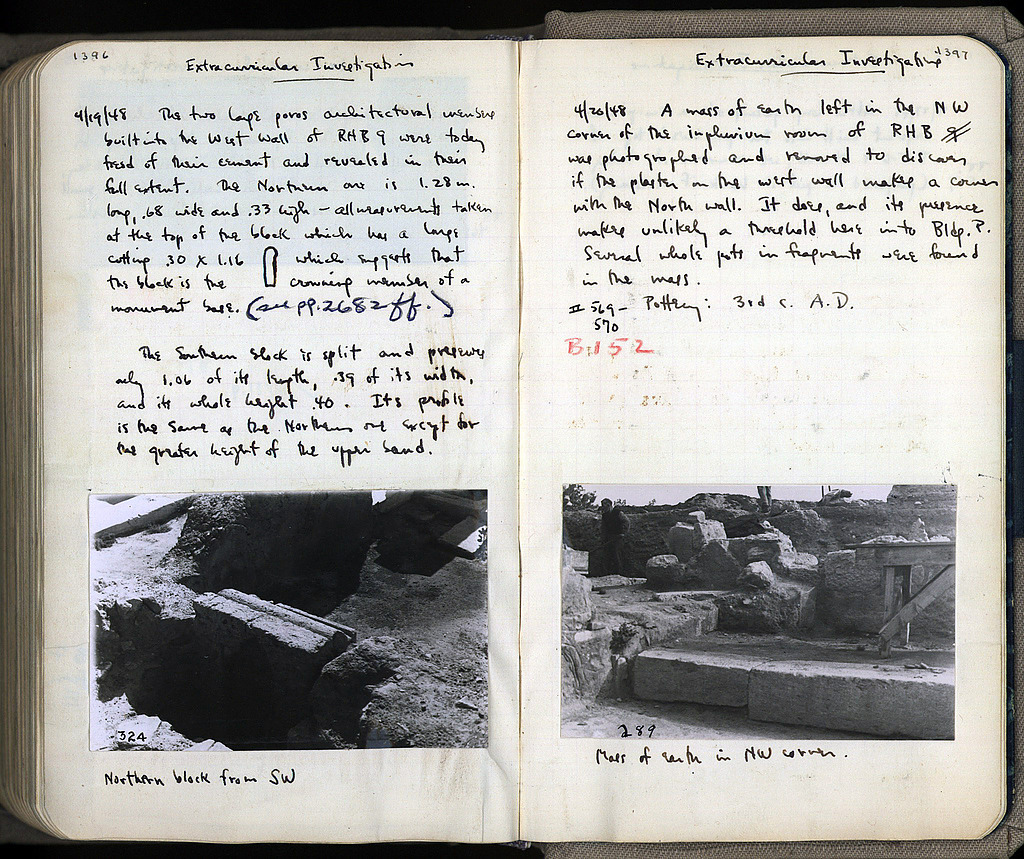 1396
Extracurricular Investigation
4/19/48 The two large poros architectural members
built into the West Wall of RHB 9 were today
freed of their cement and revealed in their
full extent. The Northern one is 1.28 m.
long, .68 wide and .33 high – all measurements taken
at the top of the block which has a large
cutting .30 x 1.16 which suggests that
the block is the crowning member of a
monument base. (see pp. 2682 ff.)
The Southern block is split and preserves
only 1.06 of its length, .39 of its width,
and its whole height .40. Its profile
is the same as the Northern one except for
the greater height of the upper band.
324
Northern block from SW
1397
Extracurricular Investigation
4/20/48 A mass of earth left in the NW
corner of the impluvium room of RHB
was photographed and removed to discover
if the plaster on the west wall makes a corner
with the North wall. It does, and its presence
makes unlikely a threshold here into Bldg. P.
Several whole pots in fragments were found
in the mass.
II 569– Pottery: 3rd c. A.D.
570
B 152
289
Mass of earth in NW corner.